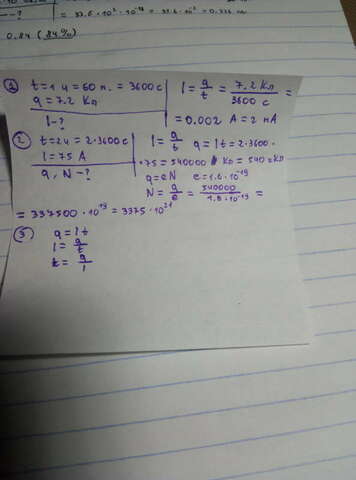 0.84 (84%)
① t=1ч=60м.=3600с | I=q/t=7.2Кл/3600с=
q=7.2 Кл
I-? =0.002 A=2 мА
② t=2ч=2·3600с | I=q/t q=It=2·3600·
I=75 A ·75=540000 Кл=540кКл
q, N-? q=eN e=1.6·10⁻¹⁹
N=q/e=540000/1.6·10⁻¹⁹=
=337500·10¹⁹=3375·10²¹
③ q=It
I=q/t
t=q/I